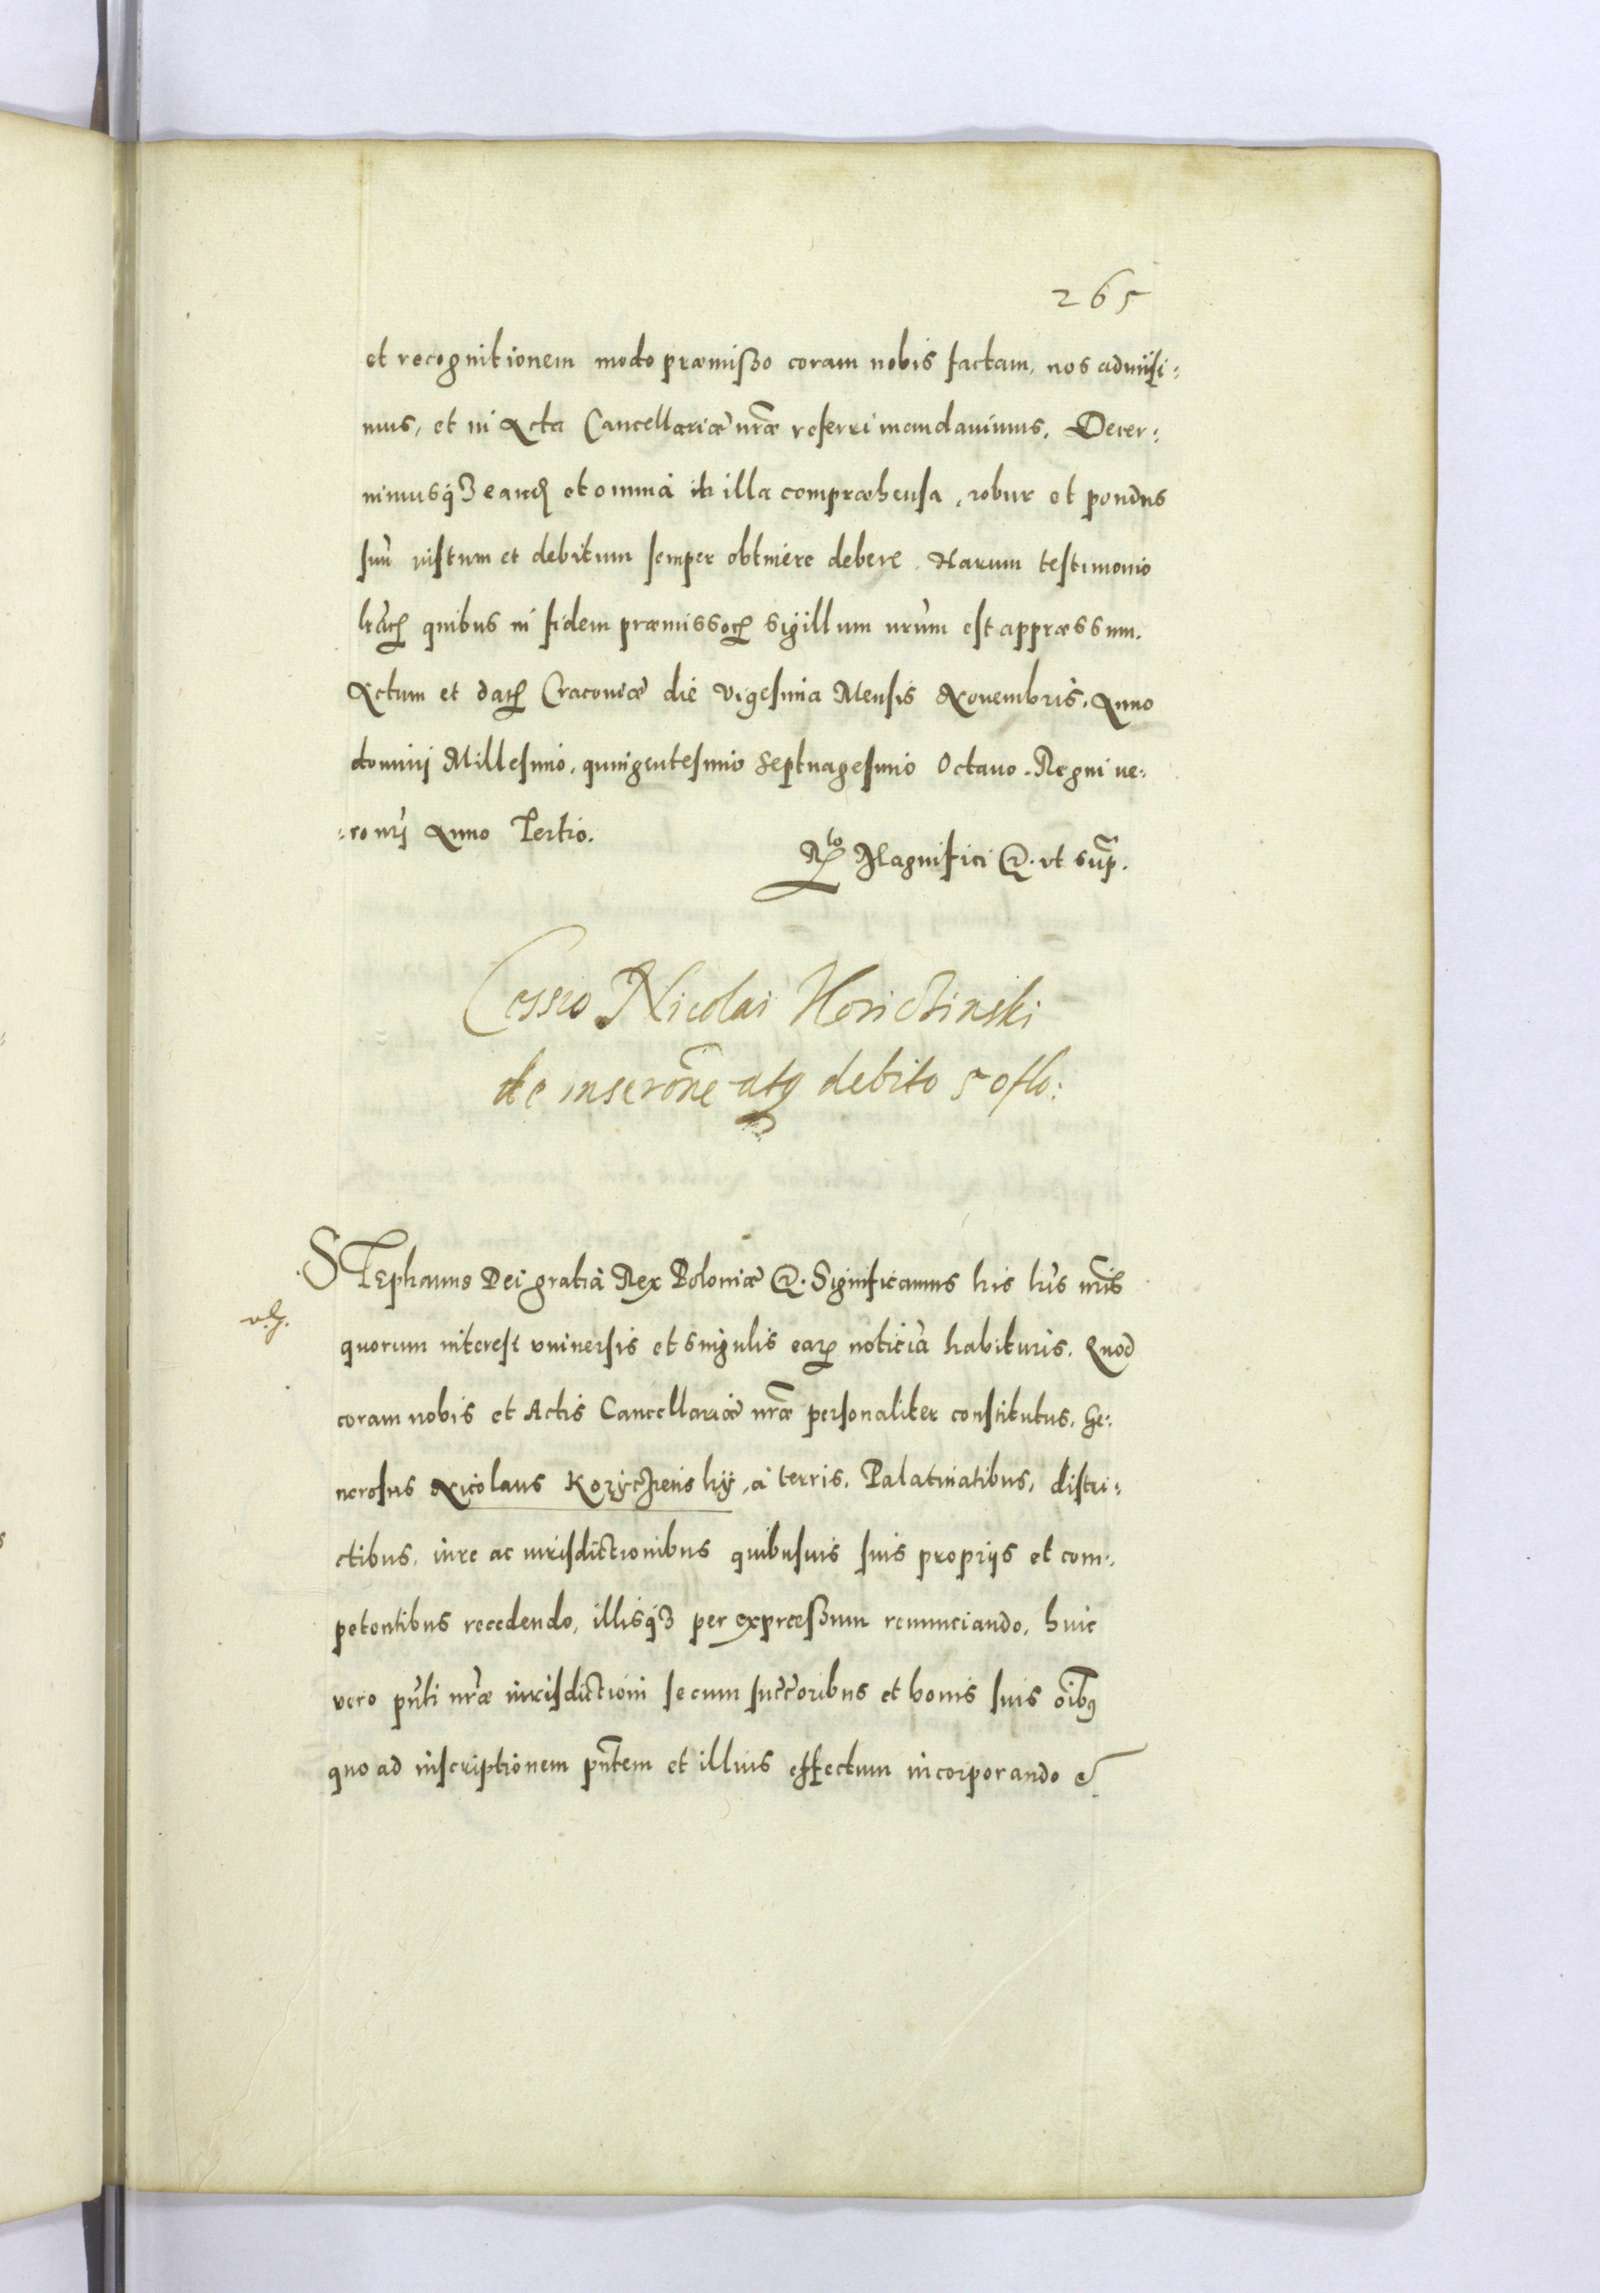 265
et recognitionem modo præmißo coram nobis factam, nos admisi:
mus, et in Acta Cancellariæ nr̃æ referri mandauimus. Decer:
nimusq3 eandẽ et omnia in illa compræhensa, robur et pondus
suũ iustum et debitum semper obtinere debere. Harum testimonio
lr̃arꝝ quibus in fidem præmissorꝝ sigillum nr̃um est appræssum.
Actum et datꝝ Cracouiæ die vigesima Mensis Nouembris. Anno
domini Millesimo, quingentesimo Septuagesimo Octauo. Regni ve:
:ro nr̃j Anno Tertio.
Rᵗᵒ Magnifici &. vt sup̃.
Cessio Nicolai Koriczinski
de inscrõne atq debito 50 flo:
STephanus Dei gratia Rex Poloniæ &. Significamus his lr̃is nr̃is
quorum interest vniuersis et singulis earꝝ noticiã habituris. Quod
coram nobis et Actis Cancellariæ nr̃æ personaliter constitutus. Ge:
nerosus Nicolaus Korÿczjenskÿ, à terris, Palatinatibus, distri:
ctibus, iure ac iurisdictionibus quibusuis suis proprijs et com:
petentibus recedendo, illisq3 per expræßum renunciando, huic
vero pñti nr̃æ iurisdictioni se cum succ̃oribus et bonis suis oĩbꝰ
quo ad inscriptionem pñtem et illius effectum incorporando &